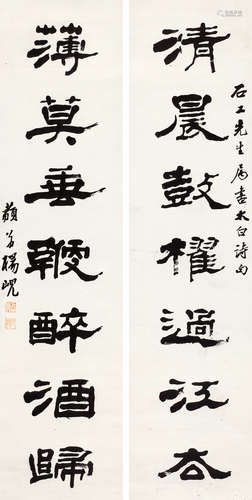 石工先生屬書太白詩句
清晨鼓櫂過江去
薄莫垂鞭醉酒歸
藐翁楊峴